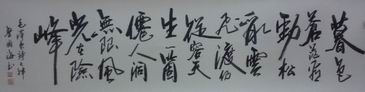 暮色
蒼茫看
勁松
亂雲
飛渡仍
從容天
生一箇
僊人洞
無限風
光在險
峰
毛澤東詩
海書